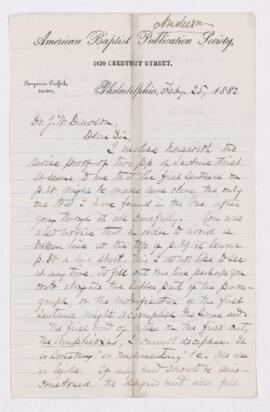 Anderson
American Baptist Publication Society,
1420 CHESTNUT STREET,
Benjamin Griffith,
Secretary.
Philadelphia, Feby 25, 1882
Dr. J. W. Dawson,
Dear Sir,
I enclose herewith the
revise proof of two pp of Lecture First.
It seems to me that the first sentence on
p. 28 might be made more clear, the only
one that I have found in the Ms. after
going through it all carefully. You will
also notice that in order to avoid a
broken line at the top of p. 29 it leaves
p. 28 a line short. This I do not like to see
at any time. To fill out this line perhaps you
could elongate the latter part of the para-
graph, or the modification of the first
sentence might accomplish the same end.
The first word of line on the first cut,
the Amphioxus, I cannot decipher. It
is something or "rudimentary" &c. Also one
in links. If any word should be mis-
construed, the desired word will fill